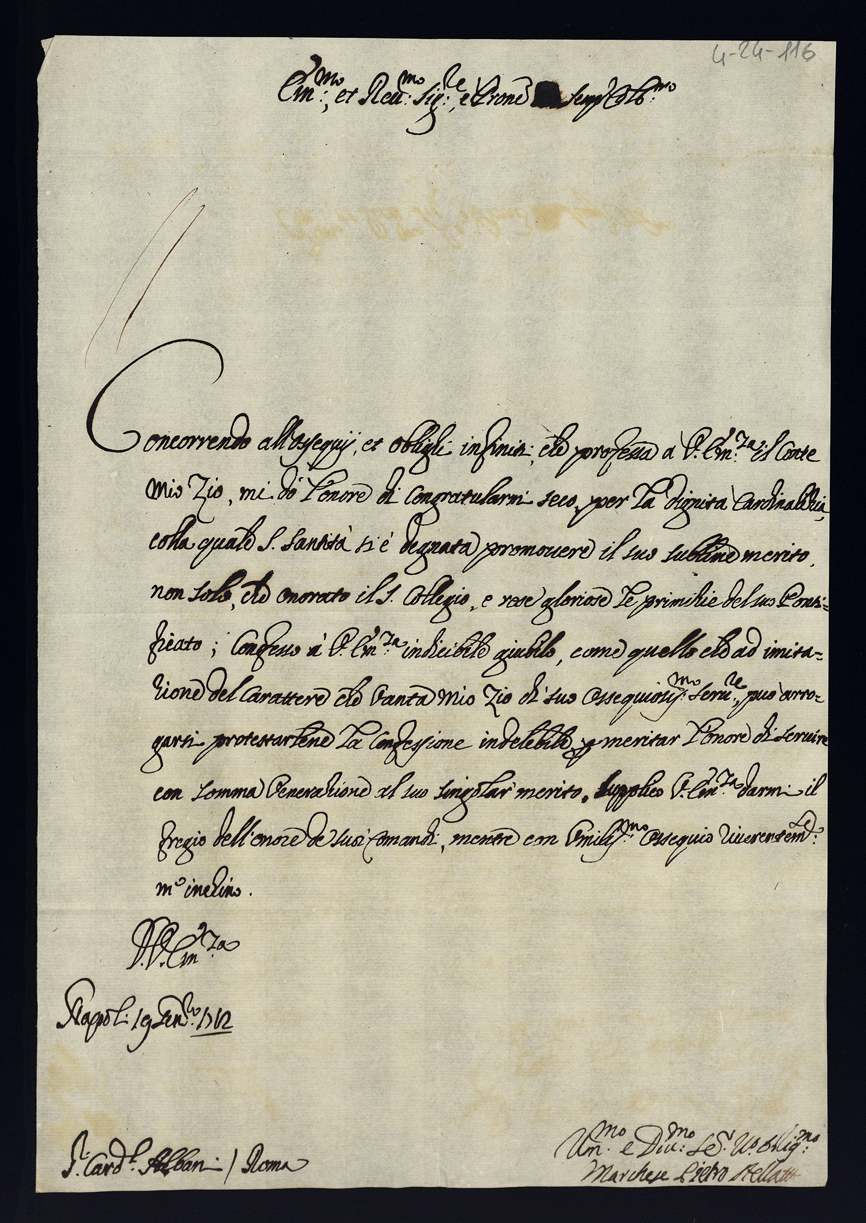 4-24-116
Em:mo, et Reu:mo Sig:re, e Prone Semp Colb:mo
Concorrendo all'ossequij, et oblighi infiniti, che professa a V. Em:za il Conte
Mio Zio, mi dò l'onore di congratularmi seco, per la dignità Cardinalitia,
colla quale S. Santità si è degnata promouere il suo sublime merito,
non solo, che onorato il S. Collegio, e rese gloriose le primitie del suo Ponti-
ficato; Confesso à V. Em:za indicibile giubilo, come quello che ad imita-
tione del Carattere che vanta Mio Zio di suo ossequiosiss:mo seru:re, può arro-
garsi protestarlene la Confessione indelebile p meritar l'onore di seruire
con somma Veneratione al suo singolar merito. Supplico V. Em:za darmi il
fregio dell'onore de suoi Comandi, mentre con Vmiliss:mo ossequio riuerentem:te
m'inchino.
D. V. Em:za
Napoli 19 1712
S.r Card.l Albani / Roma
Um:mo e Diu:mo Se:r Oblig:mo
Marchese Pietro